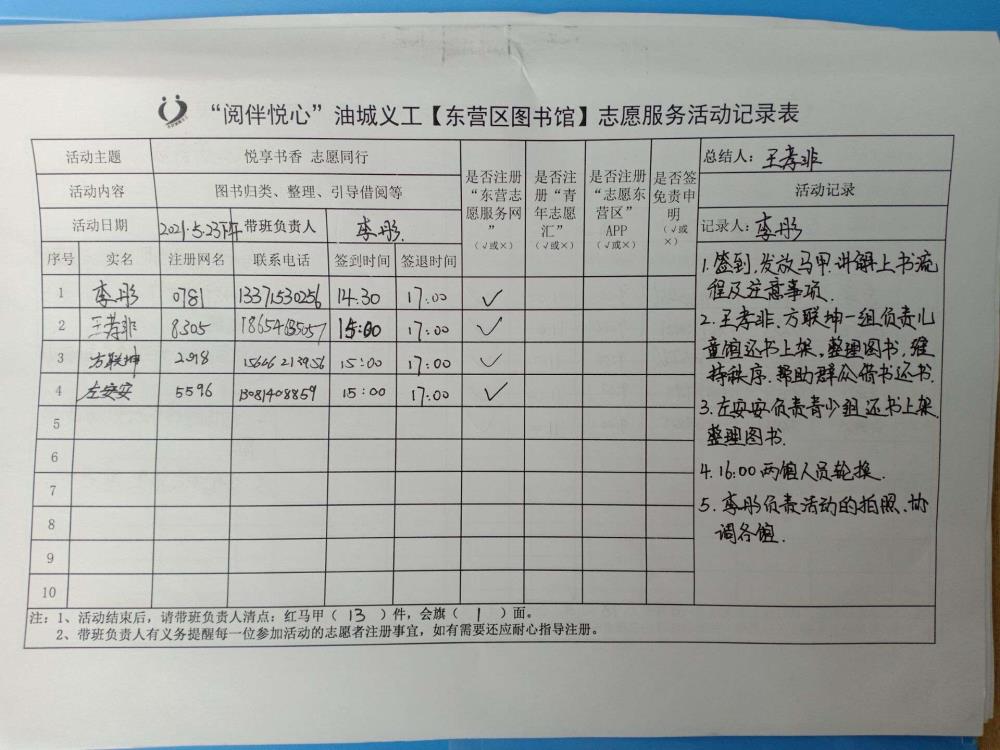 “阅伴悦心”油城义工【东营区图书馆】志愿服务活动记录表
活动主题 悦享书香 志愿同行
活动内容 图书归类、整理、引导借阅等
活动日期 2021.5.23下午 带班负责人 李彤.
是否注册“东营志愿服务网”（√或×）
是否注册“青年志愿汇”（√或×）
是否注册“志愿东营区”APP（√或×）
是否签免责申明（√或×）
总结人：王孝非
活动记录
记录人：李彤
序号 实名 注册网名 联系电话 签到时间 签退时间
1 李彤 0781 13371530256 14.30 17:00 √
2 王孝非 8305 18654635057 15:00 17:00 √
3 方联坤 2918 15:00 17:00 √
4 左安安 5596 13081408859 15:00 17:00 √
5
6
7
8
9
10
1.签到,发放马甲.讲解上书流
程及注意事项.
2.王孝非、方联坤一组负责儿
童馆还书上架,整理图书,维
持秩序.帮助群众借书还书.
3.左安安负责青少组还书上架.
整理图书.
4.16:00两馆人员轮换.
5.李彤负责活动的拍照、协
调各馆.
注：1、活动结束后，请带班负责人清点：红马甲（ 13 ）件，会旗（ 1 ）面。
2、带班负责人有义务提醒每一位参加活动的志愿者注册事宜，如有需要还应耐心指导注册。